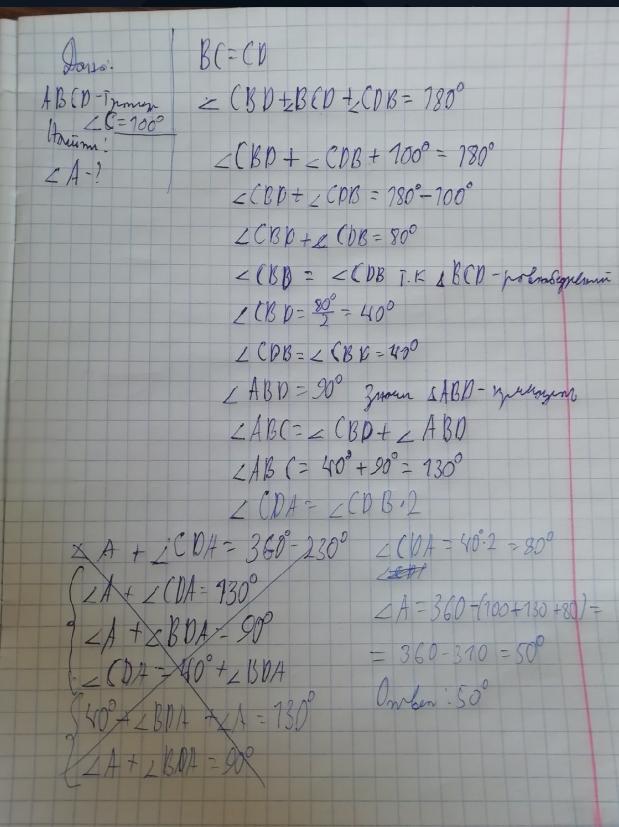 Дано:
ABCD-трапец
∠C=100°
Найти:
∠A-?
BC=CD
∠CBD+∠BCD+∠CDB=180°
∠CBD+∠CDB+100°=180°
∠CBD+∠CDB=180°-100°
∠CBD+∠CDB=80°
∠CBD=∠CDB т.к ΔBCD-равнобедренный
∠CBD=80°/2=40°
∠CDB=∠CBD=40°
∠ABD=90° значит ΔABD-прямоуг
∠ABC=∠CBD+∠ABD
∠ABC=40°+90°=130°
∠CDA=∠CDB·2
∠A+∠CDA=360°-230°
∠A+∠CDA=130°
∠A+∠BDA=90°
∠CDA=40°+∠BDA
40°+∠BDA+∠A=130°
∠A+∠BDA=90°
∠CDA=40°·2=80°
∠A=360-(100+130+80)=
=360-310=50°
Ответ:50°